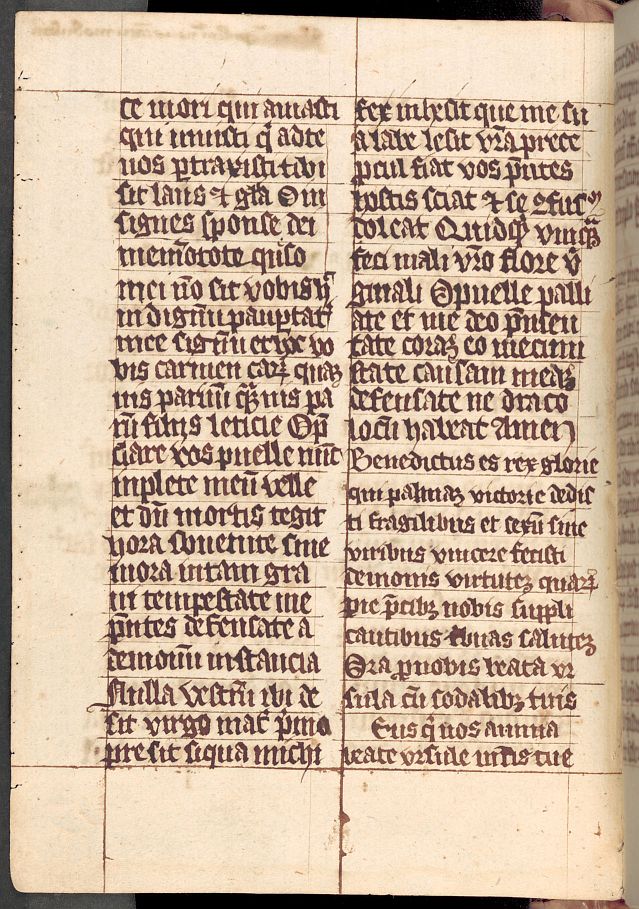 te mori qui amasti
qui iuuisti q̄ ad te
uos ptraxisti tibi
sit laus ⁊ gl̄a O in
signes sponse dei
mem̄tote queso
mei n̄o sit vobis
indignū paup̄tat
mee signū ergo vo
bis carmen
nis paruū q̄uis pa
rū finis leticie Op̄
ciare vos puelle nūc
inplete meū velle
et dū mortis tegit
hora ꝯuenite sine
mora in tam gra
ui tempestate me
p̄ntes defensate a
demonū instancia
Nulla vestrū ibi de
sit virgo mat̄ p̄mo
pre sit siqua michi
fex inhesit que me su
a labe lesit vr̄a prece
ꝓcul fiat vos p̄ntes
hostis sciat ⁊ se ꝯfusū
doleat Quidq̄
feci mali vr̄o flore v̄
ginali O puelle palli
ate et me deo p̄sen
tate coraꝫ eo mecum
state causam meaꝫ
defensate ne draco
locū habeat Amen
Benedictus es rex glorie
qui palmaꝫ victorie dedis
ti fragilibus et sexū sine
viribus vincere fecisti
demonis virtuteꝫ quarū
pie p̄cibꝫ nobis suppli
cantibus tribuas saluteꝫ
Ora ꝓ nobis beata vr
sula cū sodalibꝫ tuis
Eus q̄ nos annua
beate vrsule